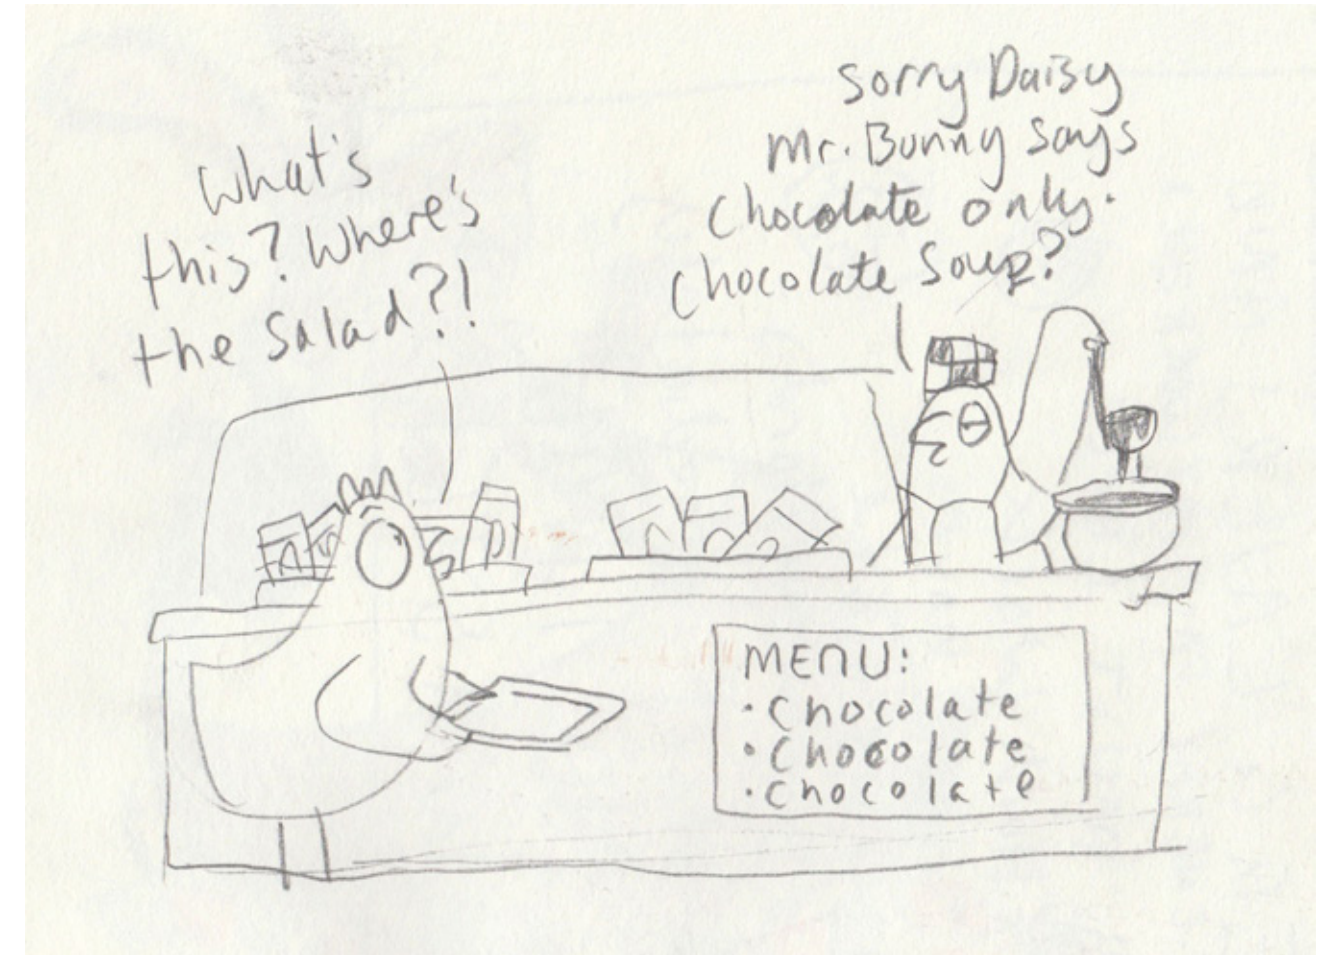 What's
this? Where's
the Salad?!
Sorry Daisy
Mr. Bunny Says
Chocolate only.
Chocolate Soup?
MENU:
• Chocolate
• Chocolate
• Chocolate